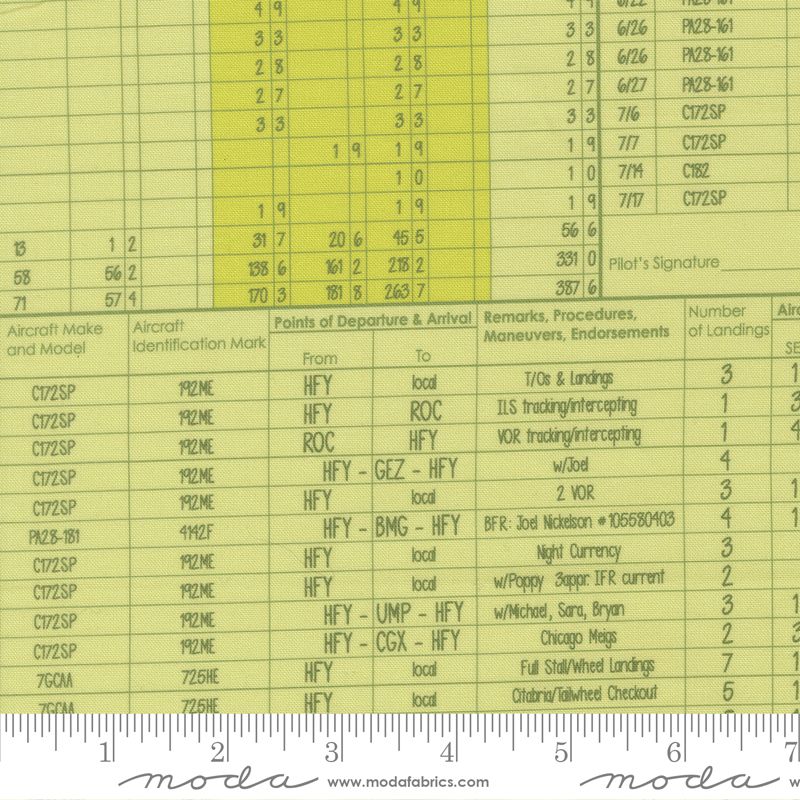 4 9 4 9 4 9 6/22 PA28-161
3 3 3 3 3 3 6/26 PA28-161
2 8 2 8 2 8 6/26 PA28-161
2 7 2 7 2 7 6/27 PA28-161
3 3 3 3 3 3 7/6 C172SP
1 9 1 9 1 9 7/7 C172SP
1 0 1 0 7/14 C182
1 9 1 9 1 9 7/17 C172SP
13 1 2 31 7 20 6 45 5 56 6
58 56 2 138 6 161 2 218 2 331 0 Pilot's Signature
71 57 4 170 3 181 8 263 7 387 6
Aircraft Make and Model
Aircraft Identification Mark
Points of Departure & Arrival
From To
Remarks, Procedures, Maneuvers, Endorsements
Number of Landings
C172SP 192ME HFY local T/Os & Landings 3 1
C172SP 192ME HFY ROC ILS tracking/intercepting 1 3
C172SP 192ME ROC HFY VOR tracking/intercepting 1 4
C172SP 192ME HFY - GEZ - HFY w/Joel 4
C172SP 192ME HFY local 2 VOR 3 1
PA28-181 4142F HFY - BMG - HFY BFR: Joel Nickelson #105580403 4 1
C172SP 192ME HFY local Night Currency 3
C172SP 192ME HFY local w/Poppy 3appr IFR current 2
C172SP 192ME HFY - UMP - HFY w/Michael, Sara, Bryan 3 1
C172SP 192ME HFY - CGX - HFY Chicago Meigs 2 3
7GCAA 725HE HFY local Full Stall/Wheel Landings 7 1
7GCAA 725HE HFY local Citabria/Tailwheel Checkout 5 1
1 2 3 4 5 6 7
moda www.modafabrics.com moda